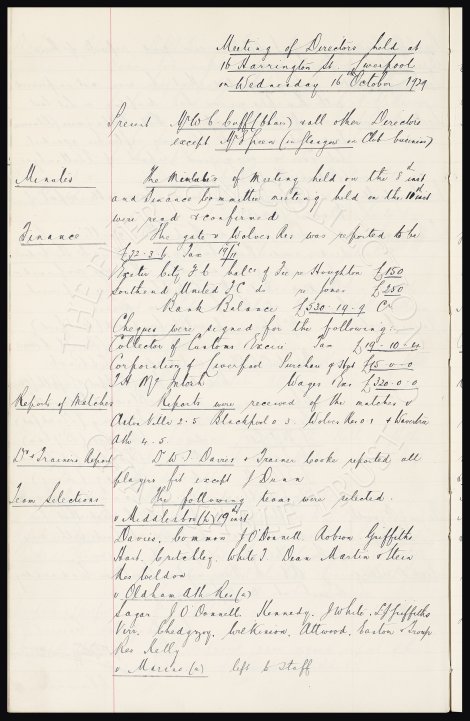 Meeting of Directors held at
16 Harrington St. Liverpool
on Wednesday 16th October 1929
Present Mr W C Cuff (Chair) & all other Directors
except Mr Green (in Glasgow on Club business)
Minutes The Minutes of Meeting held on the 8th inst
and Finance Committee meeting held on the 10th inst
were read & confirmed
Finance The gate v Wolves Res was reported to be
£32-3-6 Tax 19/11
Exeter City F.C. balce of Fee re Houghton £150
Southend United F.C. do re Jones £250
Bank Balance £530-19-9 Cr
Cheques were signed for the following:-
Collector of Customs & Excise Tax £19-10-4
Corporation of Liverpool £15-0-0
Wages £320-0-0
Reports of Matches Reports were received of the matches v
Aston Villa 2.5 Blackpool 0 3. Wolves Res 0 1 & Waverton
Ath 4.5
Drs & Trainers Report Dr W J Davies & Trainer Cooke reported all
players fit except J Dunn
Team Selections The following teams were selected
v Middlesbro (h) 19th inst
Davies, Common J O'Donnell Robson Griffiths
Hart, Critchley, White T Dean Martin & Stein
Res Weldon
v Oldham Ath Res (a)
Sagar J O Donnell, Kennedy, J White, Griffiths
Virr, Chedgzoy, Wilkinson, Attwood, Easton & Troup
Res Kelly
v Marine (a) left to staff